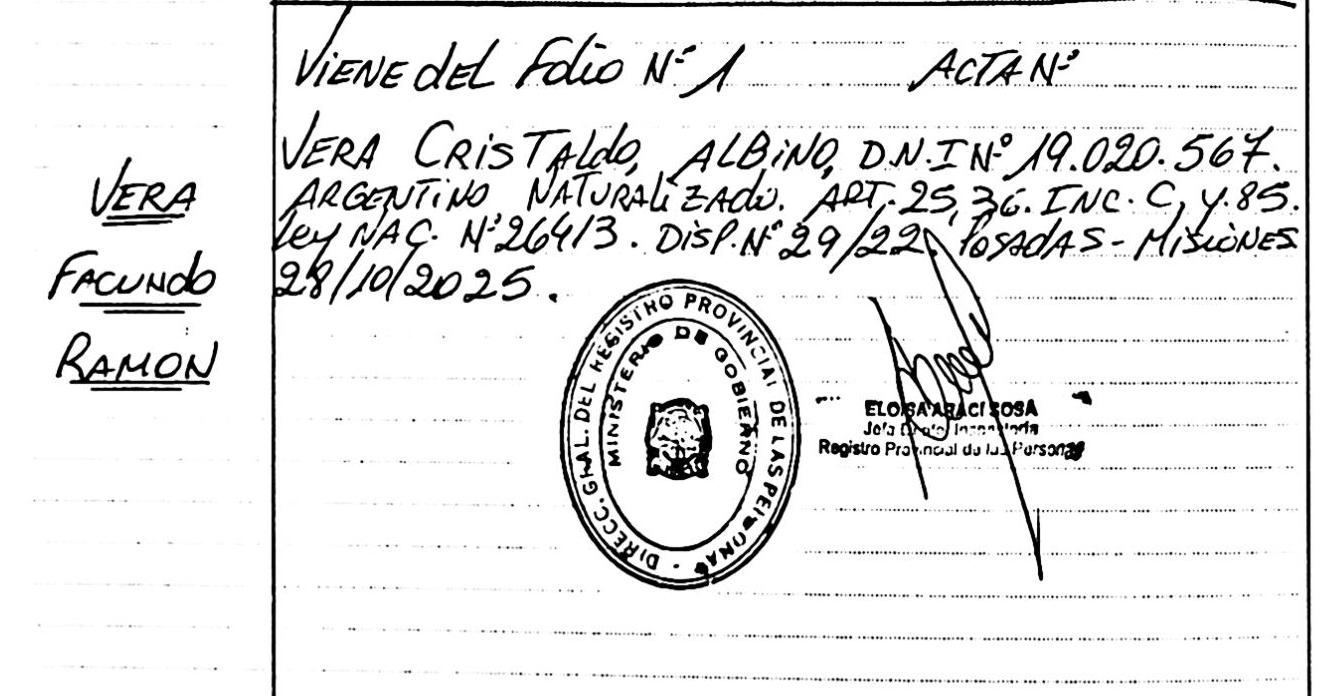 Viene del Folio Nº 1 ACTA Nº
VERA
FACUNDO
RAMON
VERA CRISTALDO, ALBINO, D.N.I Nº 19.020.567.
ARGENTINO NATURALIZADO. ART. 25, 36. INC. C, Y. 85.
Ley NAC. Nº 26413. DISP. Nº 29/22. POSADAS - MISIONES
28/10/2025.
DIRECC. GRAL. DEL REGISTRO PROVINCIAL DE LAS PERSONAS
MINISTERIO DE GOBIERNO
ELOISA ARACI SOSA
Jefa Dpto. Inspectoría
Registro Provincial de las Personas